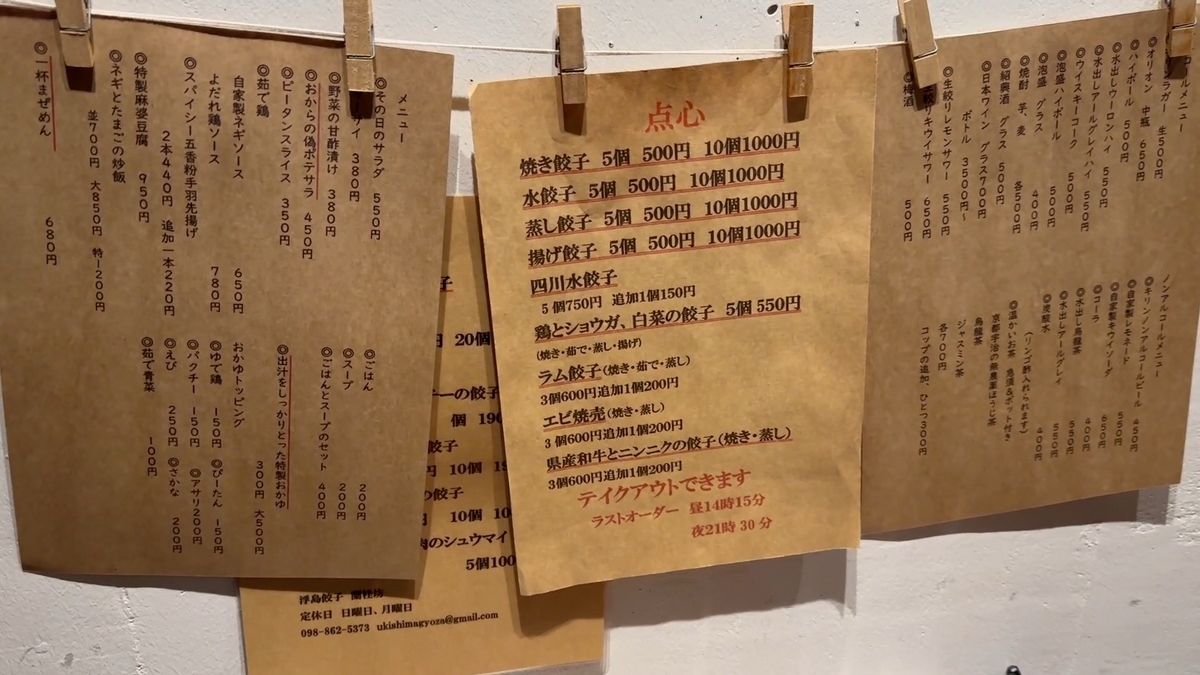 メニュー
◎その日のサラダ 550円
380円
◎野菜の甘酢漬け 380円
◎おからの偽ポテサラ 450円
◎ピータンスライス 350円
◎茹で鶏
自家製ネギソース 650円
よだれ鶏ソース 780円
◎スパイシー五香粉手羽先揚げ
2本440円 追加一本220円
◎特製麻婆豆腐 950円
◎ネギとたまごの炒飯
並700円 大850円 特1200円
◎一杯まぜめん 680円
◎ごはん 200円
◎スープ 200円
◎ごはんとスープのセット 400円
◎出汁をしっかりとった特製おかゆ
300円 大500円
おかゆトッピング
◎ゆで鶏 150円 ◎ぴーたん 150円
◎パクチー 150円 ◎アサリ200円
◎えび 250円 ◎さかな 200円
◎茹で青菜 100円
点心
焼き餃子 5個 500円 10個1000円
水餃子 5個 500円 10個1000円
蒸し餃子 5個 500円 10個1000円
揚げ餃子 5個 500円 10個1000円
四川水餃子
5個750円 追加1個150円
鶏とショウガ、白菜の餃子 5個 550円
(焼き・茹で・蒸し・揚げ)
ラム餃子(焼き・茹で・蒸し)
3個600円追加1個200円
エビ焼売(焼き・蒸し)
3個600円追加1個200円
県産和牛とニンニクの餃子(焼き・蒸し)
3個600円追加1個200円
テイクアウトできます
ラストオーダー 昼14時15分
夜21時30分
円 20個
ーの餃子
個 190
餃子
円 10個
の餃子
円 10個
肉のシュウマイ
5個100
浮島餃子
定休日 日曜日、月曜日
098-862-5373 ukishimagyoza@gmail.com
ールメニュー
ラガー 生500円
◎オリオン 中瓶 650円
◎ハイボール 500円
◎水出しウーロンハイ 550円
◎水出しアールグレイハイ 550円
◎ウイスキーコーク 500円
◎泡盛ハイボール 500円
◎泡盛 グラス 400円
◎焼酎 芋、麦 各500円
◎紹興酒 グラス 500円
◎日本ワイン グラス700円
ボトル 3500円〜
◎生絞りレモンサワー 550円
生絞りキウイサワー 650円
◎梅酒 500円
ノンアルコールメニュー
◎キリンノンアルコールビール 450円
◎自家製レモネード 550円
◎自家製キウイソーダ 650円
◎コーラ 400円
◎水出し烏龍茶 550円
◎水出しアールグレイ 550円
◎炭酸水 400円
(リンゴ酢入れられます)
◎温かいお茶 急須&ポット付き
京都宇治の無農薬ほうじ茶
烏龍茶
ジャスミン茶
各700円
コップの追加、ひとつ300円